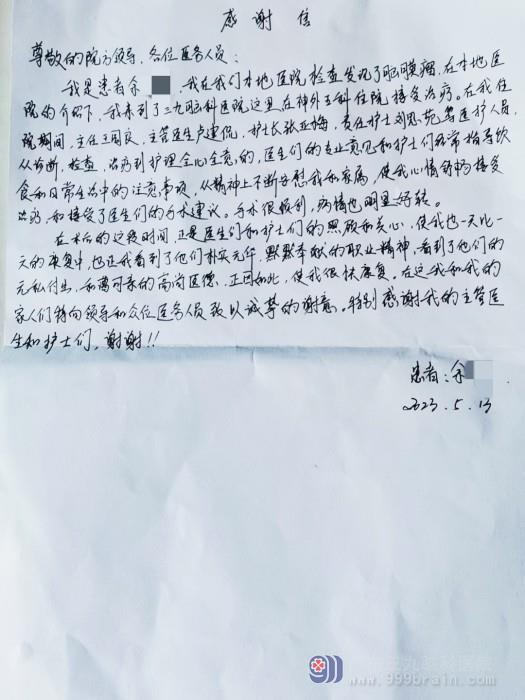 感谢信
尊敬的院方领导、各位医务人员:
我是患者余 ,我在我们本地医院检查发现了脑膜瘤,在本地医
院的介绍下,我来到了三九脑科医院这里在神外五科住院接受治疗。在我住
院期间,主任王国良,主管医生卢建侃,护士长张亚梅,责任护士刘思苑等医护人员,
从诊断,检查,治疗到护理全心全意的,医生们的专业意见和护士们经常指导饮
食和日常生活中的注意事项,从精神上不断安慰我和家属,使我心情舒畅接受
治疗,和接受了医生们的手术建议。手术很顺利,病情也明显好转。
在术后的这段时间,正是医生们和护士们的照顾和关心,使我也一天比一
天的康复中,也正我看到了们朴实无华,默默奉献的职业精神,看到了他们的
无私付出,和蔼可亲的高尚医德,正因如此,使我很快康复。在这我和我的
家人们特向领导和众位医务人员致以诚挚的谢意。特别感谢我的主管医
生和护士们,谢谢!!
患者:余
2023.5.13
三九脑科医院
www.999brain.com